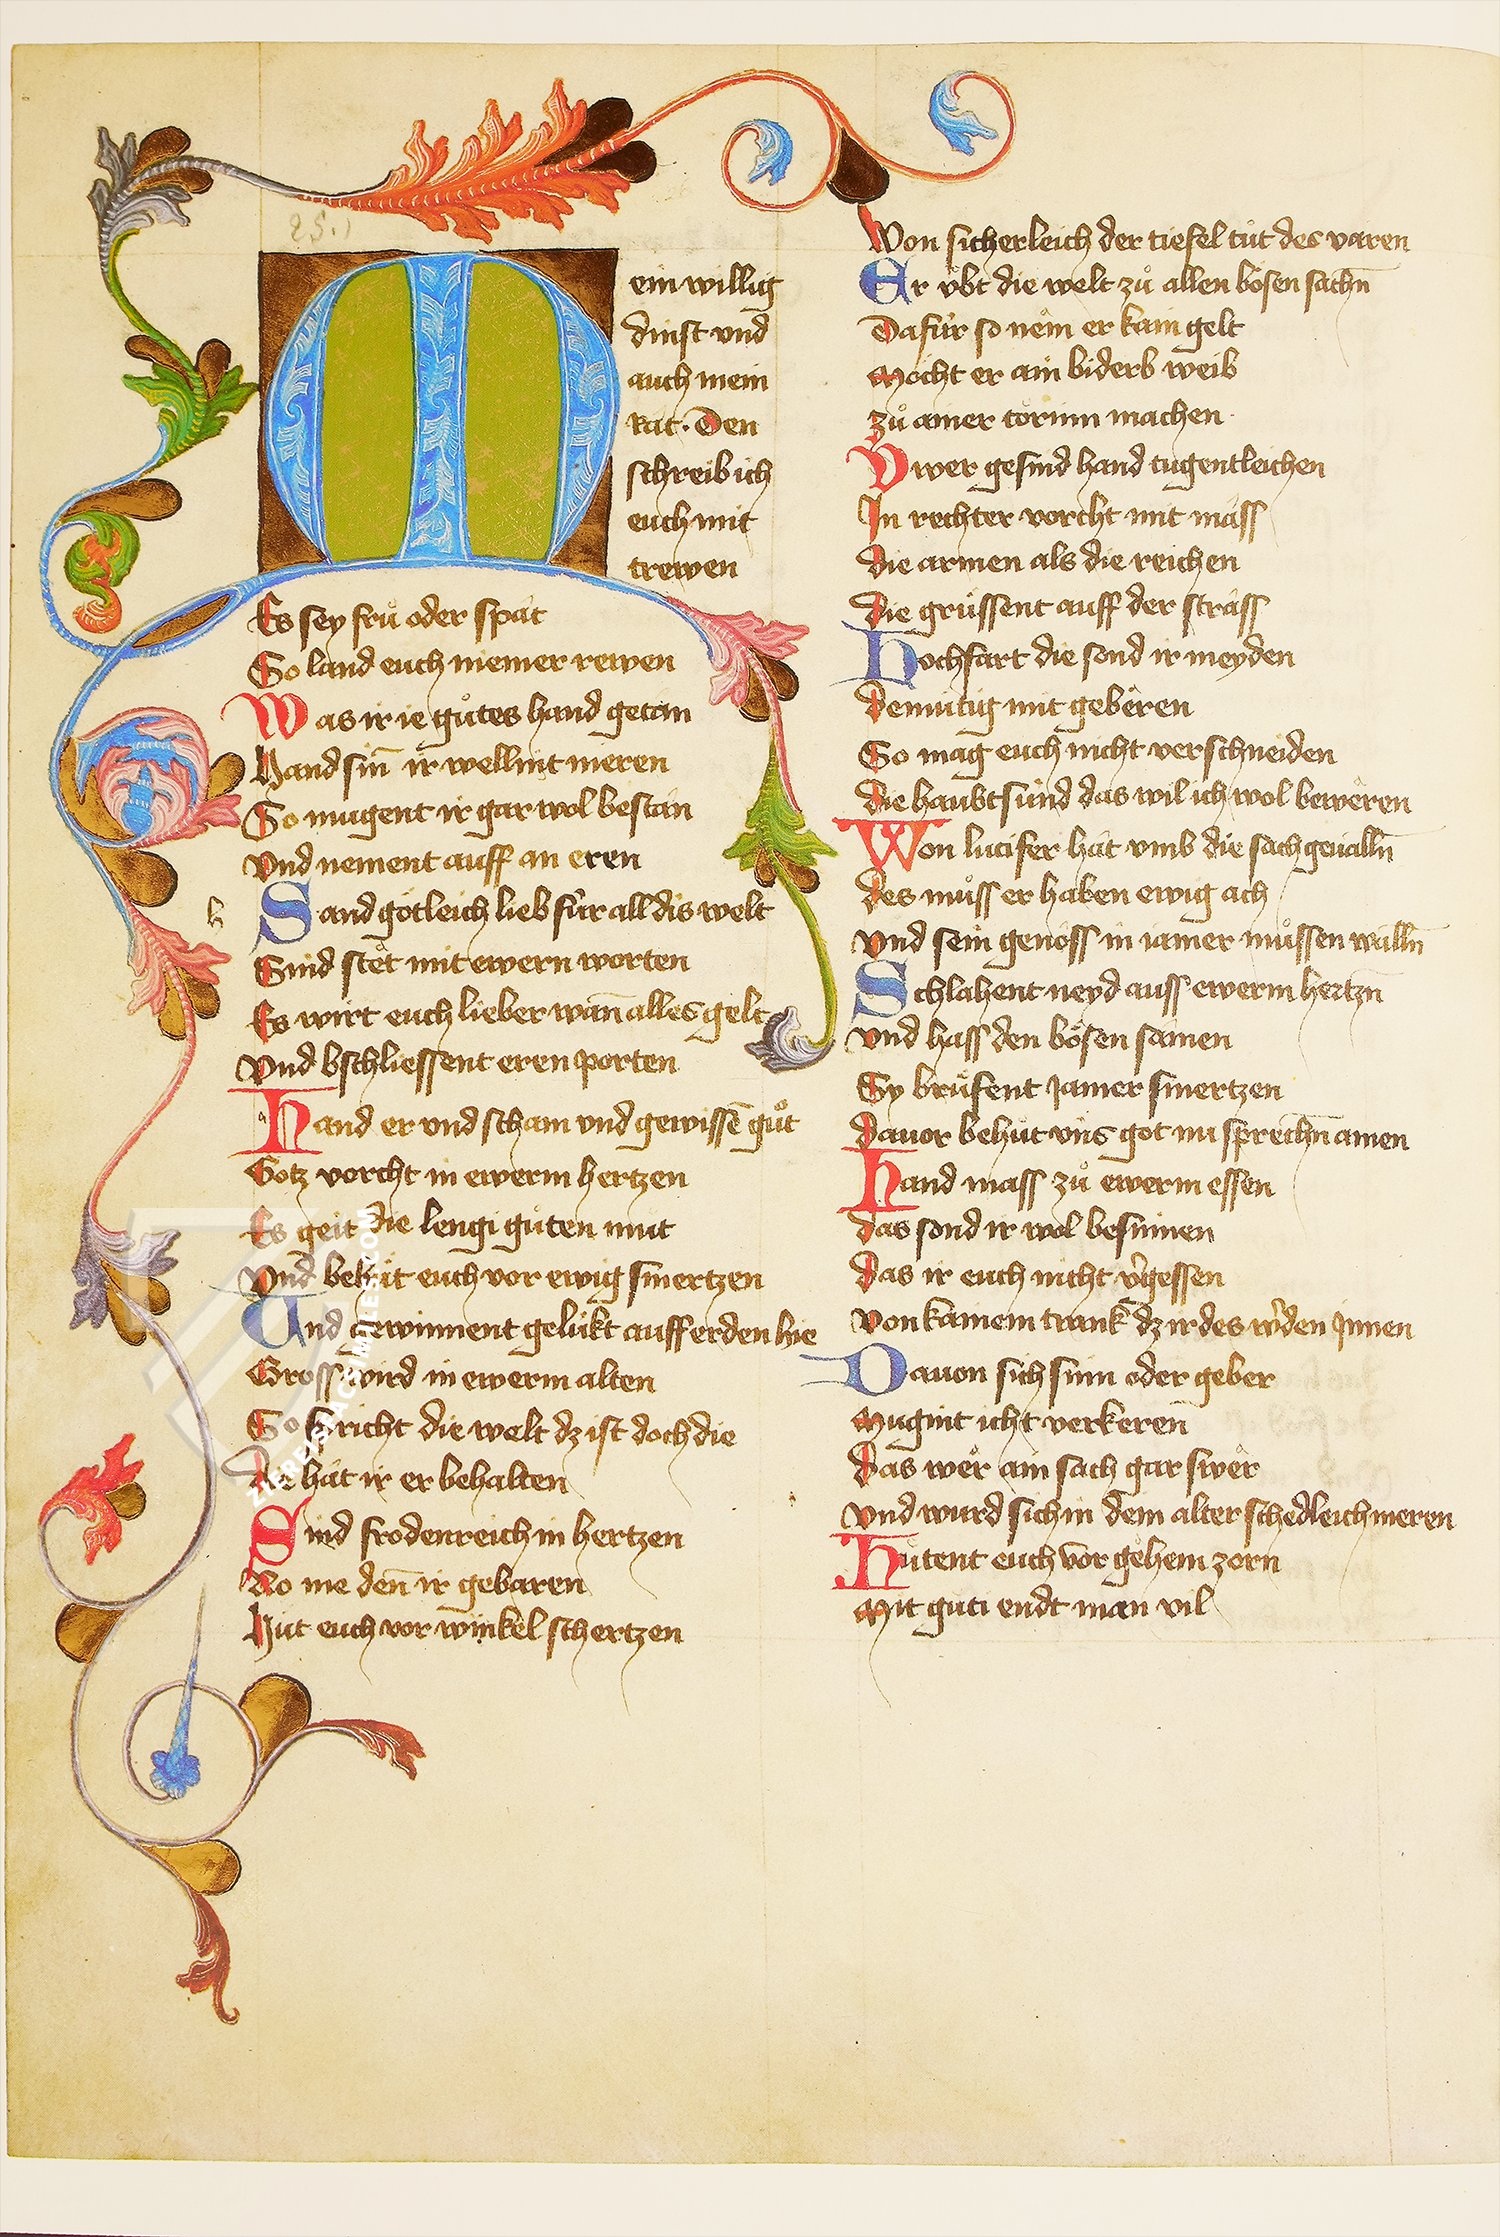 25.1
Mein willig
dinst vnd
auch mein
Rat · Den
schreib ich
euch mit
trewen
Es sey fruͦ oder spät
So land euch niemer rewen
Was ir ie guͦtes hand getän
Hand sin̄ ir wellint meren
So mugent ir gar wol bestän
Vnd nement auff an eren
h
Sand götleich lieb für all dis welt
Sind stet mit ewern worten
Es wirt euch lieber wan̄ alles gelt
Vnd bschliessent eren porten
Hand er vnd scham vnd gewissē guͦt
Gotz vorcht in ewerm hertzen
Es geit die lengi guͦten muͦt
Vnd behuͤt euch vor ewig smertzen
Vnd gewinnent gelükt auff erden hie
Gross wird in ewerm alten
So spricht die welt dz ist doch die
Die hät ir er behalten
Sind frödenreich in hertzen
Wo me den̄ ir gebaren
Hüt euch vor winkel schertzen
Won sicherleich der tiefel tuͦt des varen
Er vbt die welt zuͦ allen bösen sachn̄
Dafür so nem er kain gelt
Möcht er ain biderb weib
zuͦ ainer törinn machen
Vwer gesind hand tugentleichen
In rechter vorcht mit mäss
Die armen als die reichen
Die grüssent auff der sträss
Hochfart die sond ir meyden
Demütig mit geberen
So mag euch nicht verschneiden
Die haubtsünd das wil ich wol beweren
Won lucifer hät vmb die sach geualln̄
Des muͦss er haben ewig ach
Vnd sein genoss in iamer muͤssen walln̄
Schlahent neyd auss ewerm hertzn̄
Vnd hass den bösen samen
Sy bruͤfent Jamer smertzen
Dauor behuͤt vns got nu sprechn̄ amen
Hand mass zuͦ ewerm essen
Das sond ir wol besinnen
Das ir euch nicht v'gessen
Von kainem trank dz ir des w'den Jnnen
Dauon sich sinn oder geber
Mugint icht verkeren
Das wer ain sach gar swer
Vnd wurd sich in dem alter schedleich meren
Huͤtent euch vor gehem zorn
Mit guͤti endt man vil
ZIEREISFACSIMILES.COM